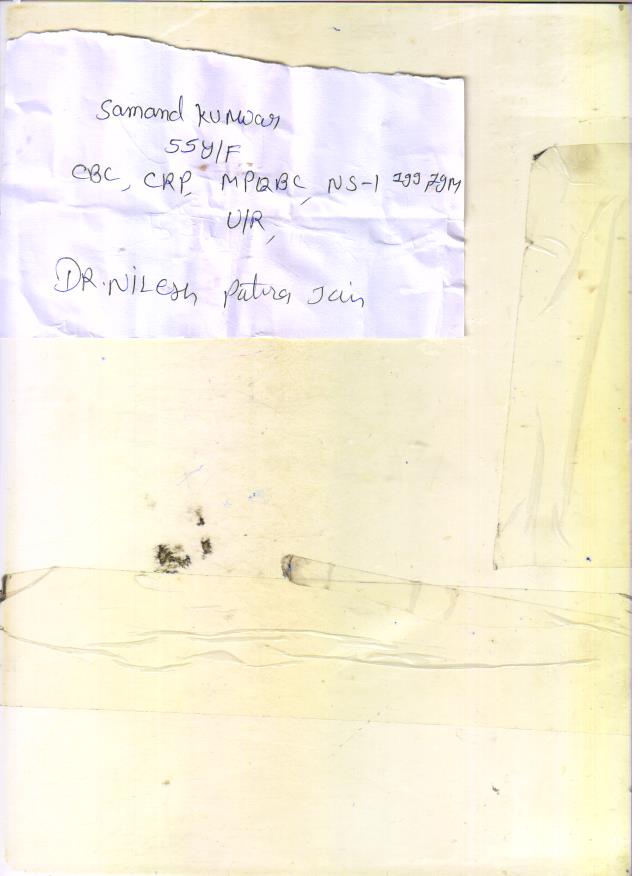 Samand Kunwar
55Y/F
CBC, CRP, MPQBC, NS-1 IgG IgM
U/R,
DR. NILESH Patira Jain